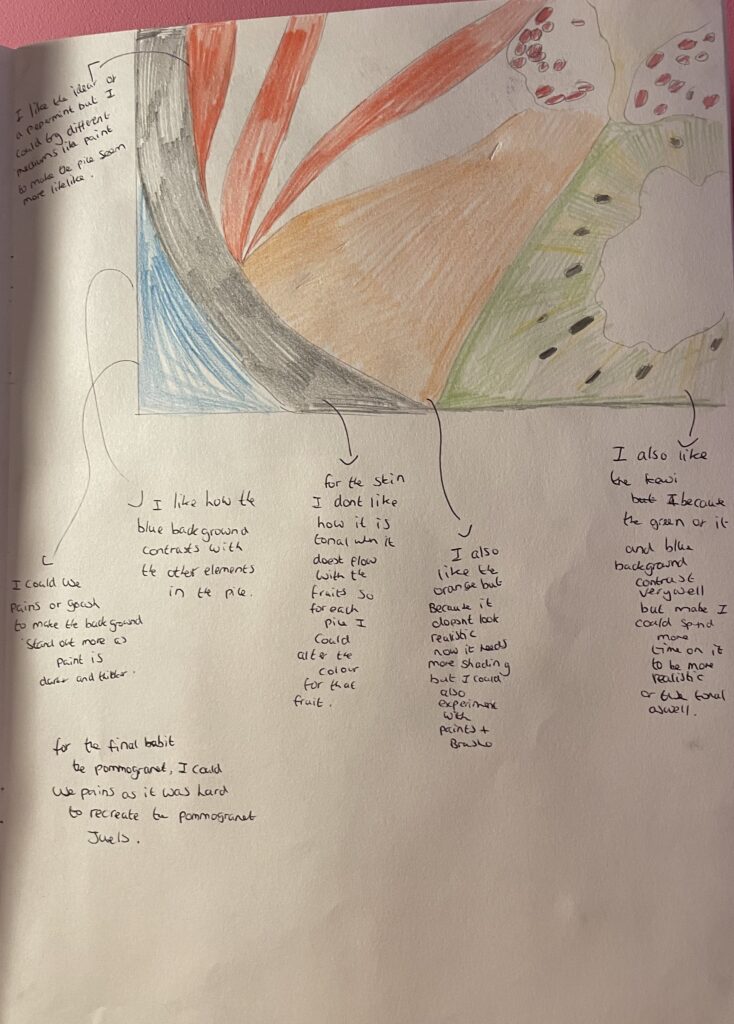 I like the idear of
a pepermint but I
could try different
mediums like paint
to make the pice seem
more lifelike.
I like how the
blue background
contrasts with
the other elements
in the pice.
I could use
pains or goash
to make the background
stand out more as
paint is
darker and thicker.
for the skin
I dont like
how it is
tonal when it
doesnt flow
with the
fruits so
for each
pice I
could
alter the
colour
for that
fruit.
I also
like the
orange but
Because it
doposnt look
realistic
now it needs
more shading
but I could
also
experiment
with
paints +
Brusho
I also like
the kewi
because
the green of it
and blue
background
contrast
very well
but make I
could spend
more
time on it
to be more
realistic
or
tonal
aswell.
for the final
the pommogranet, I could
use pains as it was hard
to recreate the pommogranet
Juels.